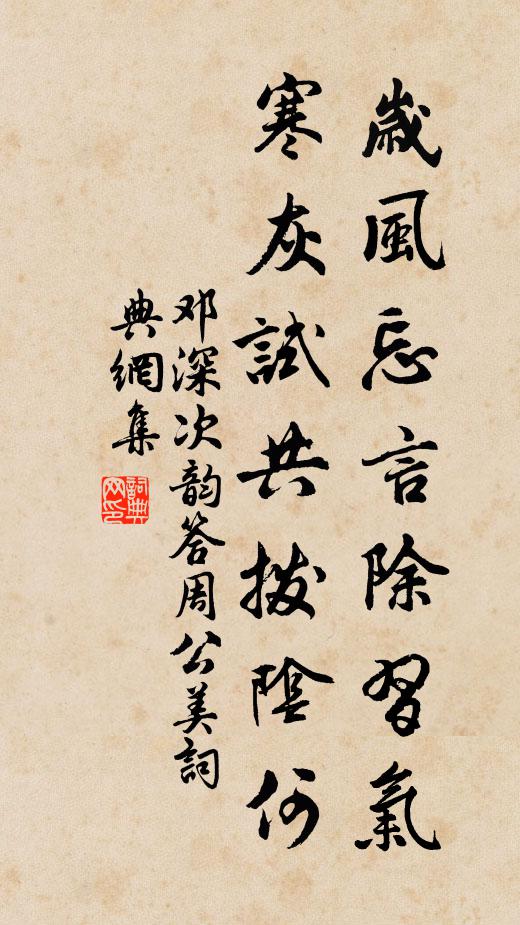 歲風忘言除習氣
寒灰試共撥陰何
邓深次韵答周公美詞
典網集
詞典网印